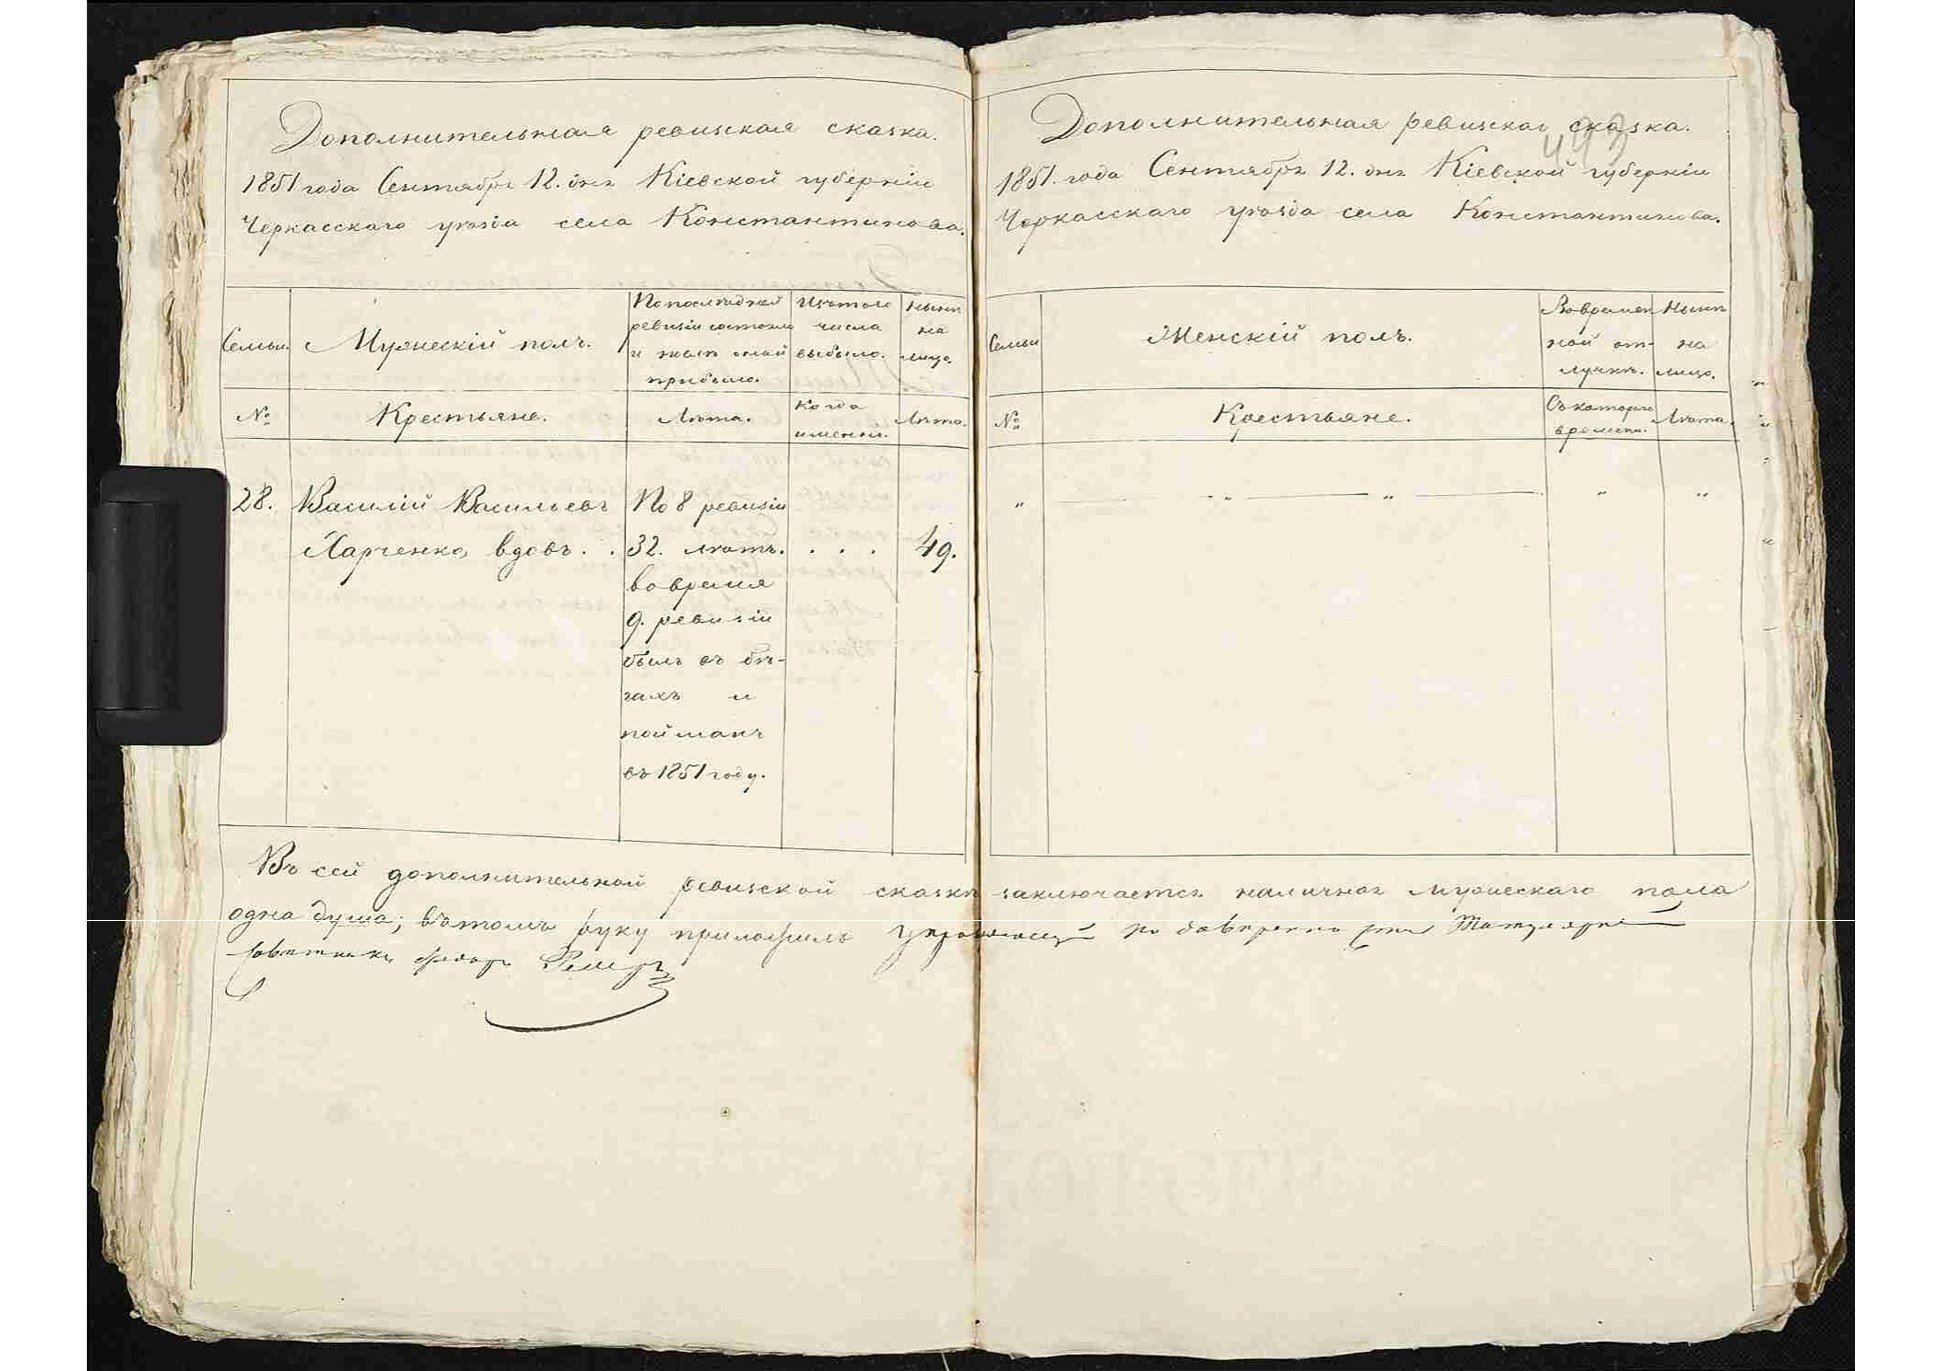 Дополнительная ревизская сказка.
1851 года Сентября 12. дня Кіевской губерніи
Черкасскаго уѣзда села Константинова.
Семьи.
Мужескій полъ.
По послѣдней
ревизіи состояло
и послѣ оной
прибыло.
Изъ того
числа
выбыло.
Нынѣ
на
лицо.
№
Крестьяне.
Лѣта.
Когда
именно.
Лѣта.
28. Василій Васильевъ
Харченко, вдовъ. . .
По 8 ревизіи
32. лѣтъ.
во время
9. ревизіи
былъ въ бѣ-
гахъ и
пойманъ
въ 1851 году.
. . .
49.
Дополнительная ревизская сказка.
493
1851. года Сентября 12. дня Кіевской губерніи
Черкасскаго уѣзда села Константинова.
Семьи
Женскій полъ.
Во времен
ной от-
лучкѣ.
Нынѣ
на
лицо.
№
Крестьяне.
Съ котораго
времени.
Лѣта.
" — " — " — " "
Въ сей дополнительной ревизской сказкѣ заключается наличная мужескаго пола
одна душа; въ томъ руку приложилъ Управляющій по довѣренности Титулярный
Совѣтникъ